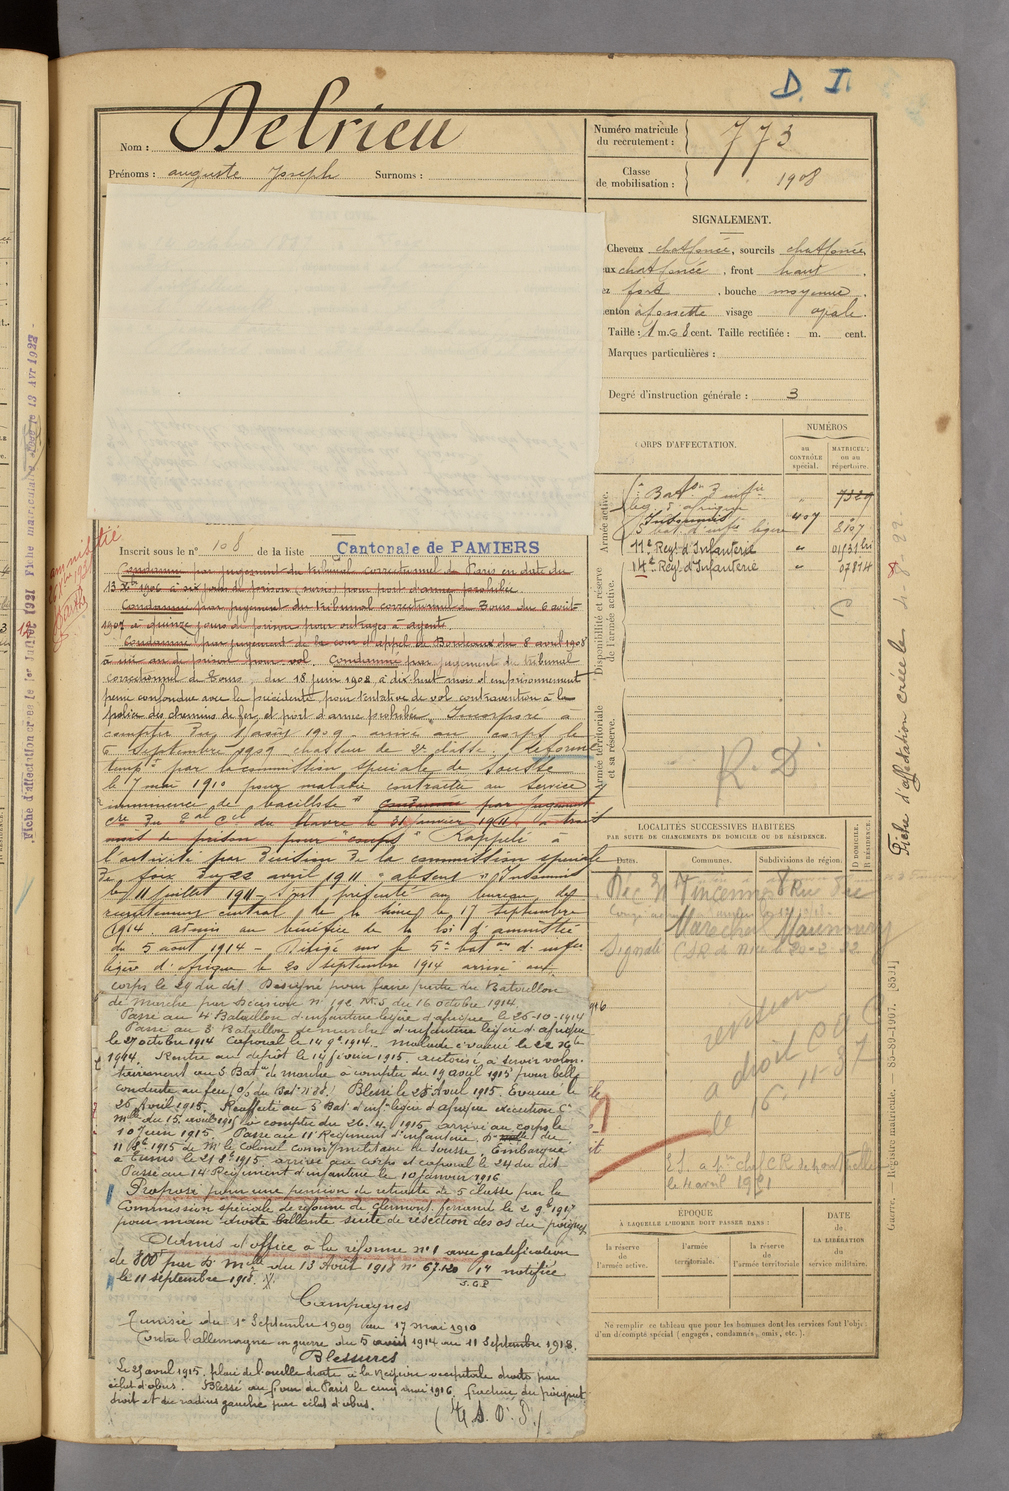 D. I.
Nom : Delrieu
Prénoms : auguste Joseph Surnoms :
Numéro matricule
du recrutement : 773
Classe
de mobilisation : 1908
SIGNALEMENT.
Cheveux chat foncé, sourcils chat foncé,
eux chat foncé, front haut.
ez fort, bouche moyenne.
enton à fossette visage ovale.
Taille : 1 m. 68 cent. Taille rectifiée : m. cent.
Marques particulières :
Degré d'instruction générale : 3
CORPS D'AFFECTATION.
NUMÉROS
au CONTRÔLE spécial.
MATRICULE ou au répertoire.
Armée active.
7329
5e bat. d'infie légère 407 8107
11e Régt d'Infanterie " 01131 bis
14e Régt d'Infanterie " 07814
Disponibilité et réserve de l'armée active.
Armée territoriale et sa réserve.
R. D
Inscrit sous le n° 108 de la liste Cantonale de PAMIERS
amnistié
Condamné par jugement du tribunal correctionnel de Paris en date du
13 Xbre 1906 à six jours de prison, sursis, pour port d'arme prohibée.
Condamné par jugement du tribunal correctionnel de Tours du 6 août
1907 à quinze jours de prison pour outrages à agent.
Condamné par jugement de la cour d'appel de Bordeaux du 8 avril 1908
à un an de prison pour vol. Condamné par jugement du tribunal
correctionnel de Tours, du 18 juin 1908, à dix huit mois d'emprisonnement
peine confondue avec la précédente, pour tentative de vol contravention à la
police des chemins de fer, et port d'arme prohibée. Incorporé à
compter du 1 août 1909. arrivé au corps le
6 Septembre 1909 chasseur de 2e classe. Réformé
tempre par la commission spéciale de Sousse
le 7 mai 1910 pour maladie contractée au service
"imminence de bacillose". Condamné par jugement
du Havre le 31 janvier 1911 à trois
mois de prison pour "coups" Rappelé à
l'activité par décision de la commission spéciale
de foix du 22 avril 1911 "absent" Insoumis
le 11 juillet 1911 – S'est présenté au bureau de
recrutement central de la Seine le 17 septembre
1914. Admis au bénéfice de la loi d'amnistie
du 5 août 1914 – Dirigé sur le 5e bat on d'infie
légère d'afrique le 20 septembre 1914 arrivé au
corps le 29 du dit. Désigné pour faire partie du Bataillon
de Marche par Décision n° 192 M.5 du 16 octobre 1914
Passé au 4 Bataillon d'infanterie légère d'afrique le 26-10-1914
Passé au 3 Bataillon de marche d'infanterie légère d'afrique
le 27 octobre 1914 Caporal le 14 9e 1914. malade évacué le 22 Xbre
1914. Rentré au dépôt le 14 février 1915. autorisé à servir volon-
tairement au 5 Bat on de marche à compter du 19 avril 1915 pour belle
conduite au feu (O/ du Bat. n° 86). Blessé le 25 Avril 1915. Evacué le
26 Avril 1915. Réaffecté au 5 Bat. d'inf. légère d'afrique exécution C.
Mlle du 15 avril 1915 à compter du 26.4.1915, arrivé au corps le
10 juin 1915. Passé au 11 Régiment d'infanterie, Don du
11 8bre 1915 de Mr le Colonel comt militaire de Sousse. Embarqué
à Tunis le 21 8bre 1915. arrivé au corps et caporal le 24 du dit
Passé au 14 Régiment d'infanterie le 10 janvier 1916
Proposé pour une pension de retraite de 5 classe par la
Commission spéciale de réforme de Clermont-ferrand le 2 9bre 1917
pour main droite ballante suite de résection des os du poignet
Admis d'office à la réforme n° 1 avec gratification
de 800f par D. Mlle du 13 Août 1918 n° 67.120 notifiée
S.G.P.
le 11 septembre 1918.
Campagnes
Tunisie du 1er Septembre 1909 au 17 mai 1910
Contre l'allemagne en guerre du 5 août 1914 au 11 Septembre 1918.
Blessures
Le 25 avril 1915, plaie de l'oreille droite à la région occipitale droite par
éclat d'obus. Blessé au four de Paris le cinq mai 1916, fracture du poignet
droit et du radius gauche par éclat d'obus.
LOCALITÉS SUCCESSIVES HABITÉES
PAR SUITE DE CHANGEMENTS DE DOMICILE OU DE RÉSIDENCE.
Dates. Communes. Subdivisions de région. D DOMICILE. R RÉSIDENCE.
Vincennes 8 Rue du
Maréchal Maunoury
Signalé CSR de Nice le 20-2-32
révision
a droit CC
le 16-11-37
le 4 avril 1921
ÉPOQUE
À LAQUELLE L'HOMME DOIT PASSER DANS :
la réserve de l'armée active.
l'armée territoriale.
la réserve de l'armée territoriale
DATE de LA LIBÉRATION du service militaire.
Ne remplir ce tableau que pour les hommes dont les services font l'objet
d'un décompte spécial (engagés, condamnés, omis, etc.).
Fiche d'affectation créée le 4-8-22.
Guerre. — Registre matricule. — 85-89-1907. [8531]
Fiche d'affectation créée le 1er Juillet 1921 Fiche matriculaire 13 AVR 1932